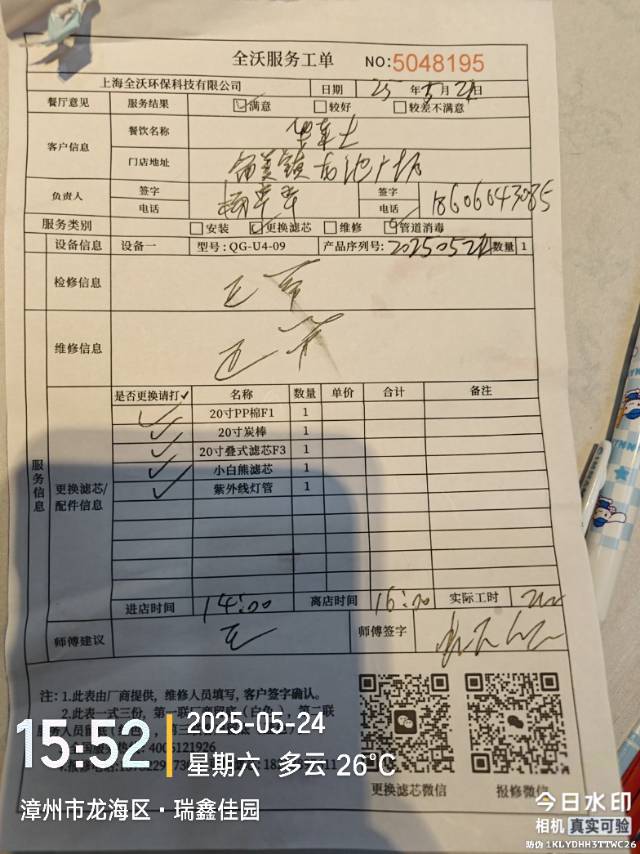 全沃服务工单 NO:5048195
上海全沃环保科技有限公司 日期 25年5月24日
餐厅意见 服务结果 满意 较好 较差不满意
客户信息 餐饮名称 华莱士
门店地址 角美镇龙池广场
负责人 签字 签字
电话 电话 18606043085
服务类别 安装 更换滤芯 维修 管道消毒
设备信息 设备一 型号:QG-U4-09 产品序列号: 20250524 数量 1
检修信息 正常
维修信息 正常
服务信息
更换滤芯/配件信息
是否更换请打✓ 名称 数量 单价 合计 备注
✓ 20寸PP棉F1 1
✓ 20寸炭棒 1
✓ 20寸叠式滤芯F3 1
✓ 小白熊滤芯 1
✓ 紫外线灯管 1
进店时间 14:00 离店时间 16:00 实际工时 2h
师傅建议 无 师傅签字
注: 1.此表由厂商提供, 维修人员填写, 客户签字确认。
2.此表一式三份, 第一联厂商留底(白色), 第二联
更换滤芯微信 报修微信
15:52
2025-05-24
星期六 多云 26°C
漳州市龙海区·瑞鑫佳园
今日水印
相机 真实可验
防伪 1KLYDHH3TTWC26